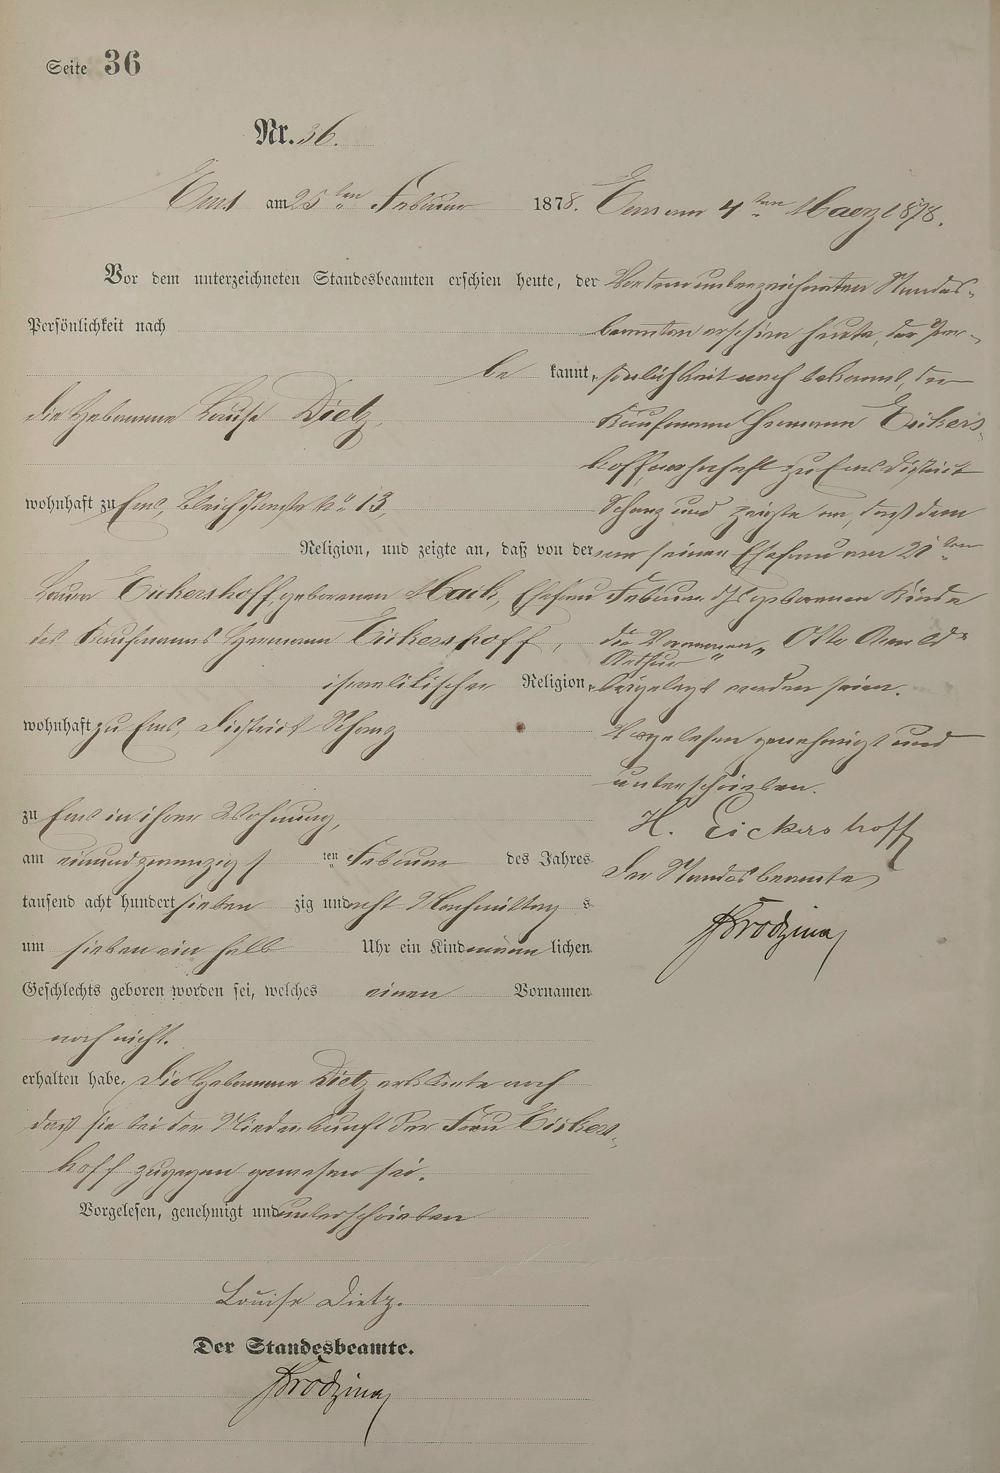 Seite 36
Nr. 36.
Ems am 25 ten Februar 1878.
Vor dem unterzeichneten Standesbeamten erschien heute, der
Persönlichkeit nach
be kannt,
die Hebamme Louise Dietz,
wohnhaft zu Ems, No 13,
Religion, und zeigte an, daß von der
Laura Eickershoff, geborenen Maik, Ehefrau
des Kaufmanns Hermann Eickershoff,
israelitischer Religion,
wohnhaft zu Ems, District Schanz
zu Ems in ihrer Wohnung,
am einundzwanzigst ten Februar des Jahres
tausend acht hundert sieben zig und acht Nachmittag s
um sieben ein halb Uhr ein Kind männ lichen
Geschlechts geboren worden sei, welches einen Vornamen
noch nicht.
erhalten habe. Die Hebamme Dietz erklärte noch
daß sie bei der Niederkunft der Frau Eickers-
hoff zugegen gewesen sei.
Vorgelesen, genehmigt und unterschrieben
Louise Dietz.
Der Standesbeamte.
Ems am 4 ten Maerz 1878.
Vor dem unterzeichneten Standes-
beamten erschien heute, der Per-
sönlichkeit nach bekannt, der
Kaufmann Hermann Eickers-
hoff, wohnhaft zu Ems District
Schanz und zeigte an, daß dem
von seiner Ehefrau am 21 ten
Februar d Js geborenen Kinde
die Vornamen „Otto Arnold
Arthur"
beigelegt worden seien.
Vorgelesen genehmigt und
unterschrieben.
H. Eickershoff
Der Standesbeamte